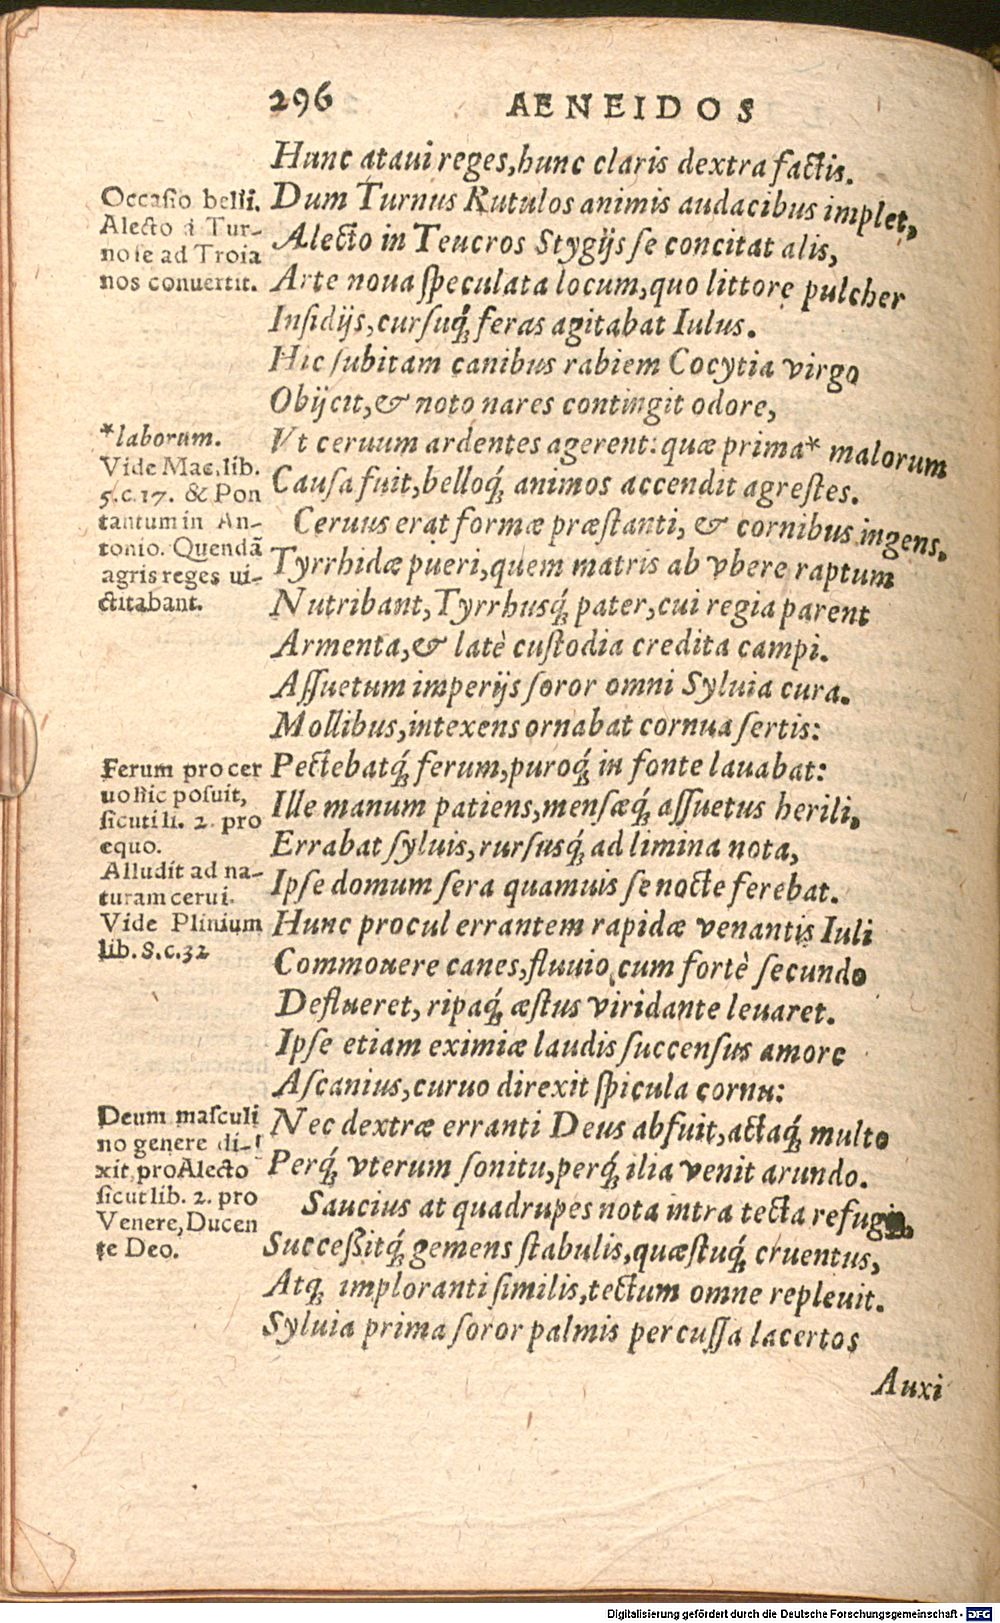 296 AENEIDOS
Hunc ataui reges, hunc claris dextra factis.
Dum Turnus Rutulos animis audacibus implet,
Alecto in Teucros Stygijs se concitat alis,
Arte noua speculata locum, quo littore pulcher
Insidijs, cursuq́; feras agitabat Iulus.
Hic subitam canibus rabiem Cocytia virgo
Obijcit, & noto nares contingit odore,
Vt ceruum ardentes agerent: quæ prima* malorum
Causa fuit, belloq́; animos accendit agrestes.
Ceruus erat formæ præstanti, & cornibus ingens,
Tyrrhidæ pueri, quem matris ab vbere raptum
Nutribant, Tyrrhusq́; pater, cui regia parent
Armenta, & latè custodia credita campi.
Assuetum imperijs soror omni Syluia cura.
Mollibus, intexens ornabat cornua sertis:
Pectebatq́; ferum, puroq́; in fonte lauabat:
Ille manum patiens, mensæq́; assuetus herili,
Errabat syluis, rursusq́; ad limina nota,
Ipse domum sera quamuis se nocte ferebat.
Hunc procul errantem rapidæ venantis Iuli
Commouere canes, fluuio cum fortè secundo
Deflueret, ripaq́; æstus viridante leuaret.
Ipse etiam eximiæ laudis succensus amore
Ascanius, curuo direxit spicula cornu:
Nec dextræ erranti Deus abfuit, actaq́; multo
Perq́; vterum sonitu, perq́; ilia venit arundo.
Saucius at quadrupes nota intra tecta refugit,
Successitq́; gemens stabulis, quæstuq́; cruentus,
Atq; imploranti similis, tectum omne repleuit.
Syluia prima soror palmis percussa lacertos
Auxi
Occasio belli.
Alecto à Tur-
no se ad Troia
nos conuertit.
*laborum.
Vide Mac. lib.
5. c. 17. & Pon
tantum in An-
tonio. Quendã
agris reges ui-
ctitabant.
Ferum pro cer
uo hic posuit,
sicuti li. 2. pro
equo.
Alludit ad na-
turam cerui.
Vide Plinium
lib. 8. c. 32
Deum masculi
no genere di-
xit, pro Alecto
sicut lib. 2. pro
Venere, Ducen
te Deo.
Digitalisierung gefördert durch die Deutsche Forschungsgemeinschaft - DFG